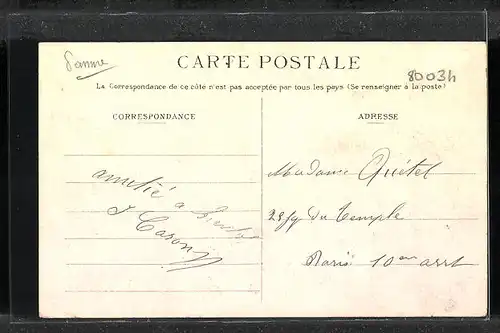 Somme
CARTE POSTALE
80034
La Correspondance de ce côté n'est pas acceptée par tous les pays (Se renseigner à la poste)
CORRESPONDANCE
ADRESSE
amitié a bientot
J Caron
Madame Quétel
28 fg du Temple
Paris 10em arrt